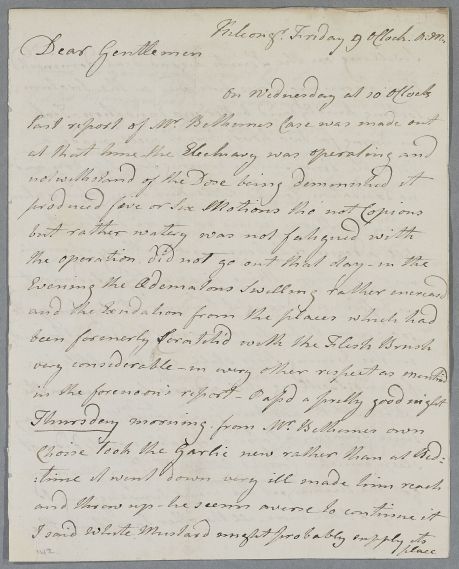 Friday 9 OClock A.M.
Dear Gentlemen
On Wednesday at 10 OClock
last report of Mr. Case was made out
at that time the Electuary was operating and
notwithstand of the Dose being deminished it
produced five or Six Motions tho' not Copious
but rather watery was not fatigued with
the operation did not go out that day - in the
Evening the Œdematous Swelling rather increasd
and the Exudation from the places which had
been formerly Scratchd with the Flesh Brush
very considerable - in every other respect as mentind
in the forenoon's report - Pass'd a pretty good night
Thursday morning from Mr. own
Choise took the Garlic new rather than at Bed:
:time it went down very ill made him reach
and throw up - he seems averse to continue it
I said White Mustard might probably supply its
place